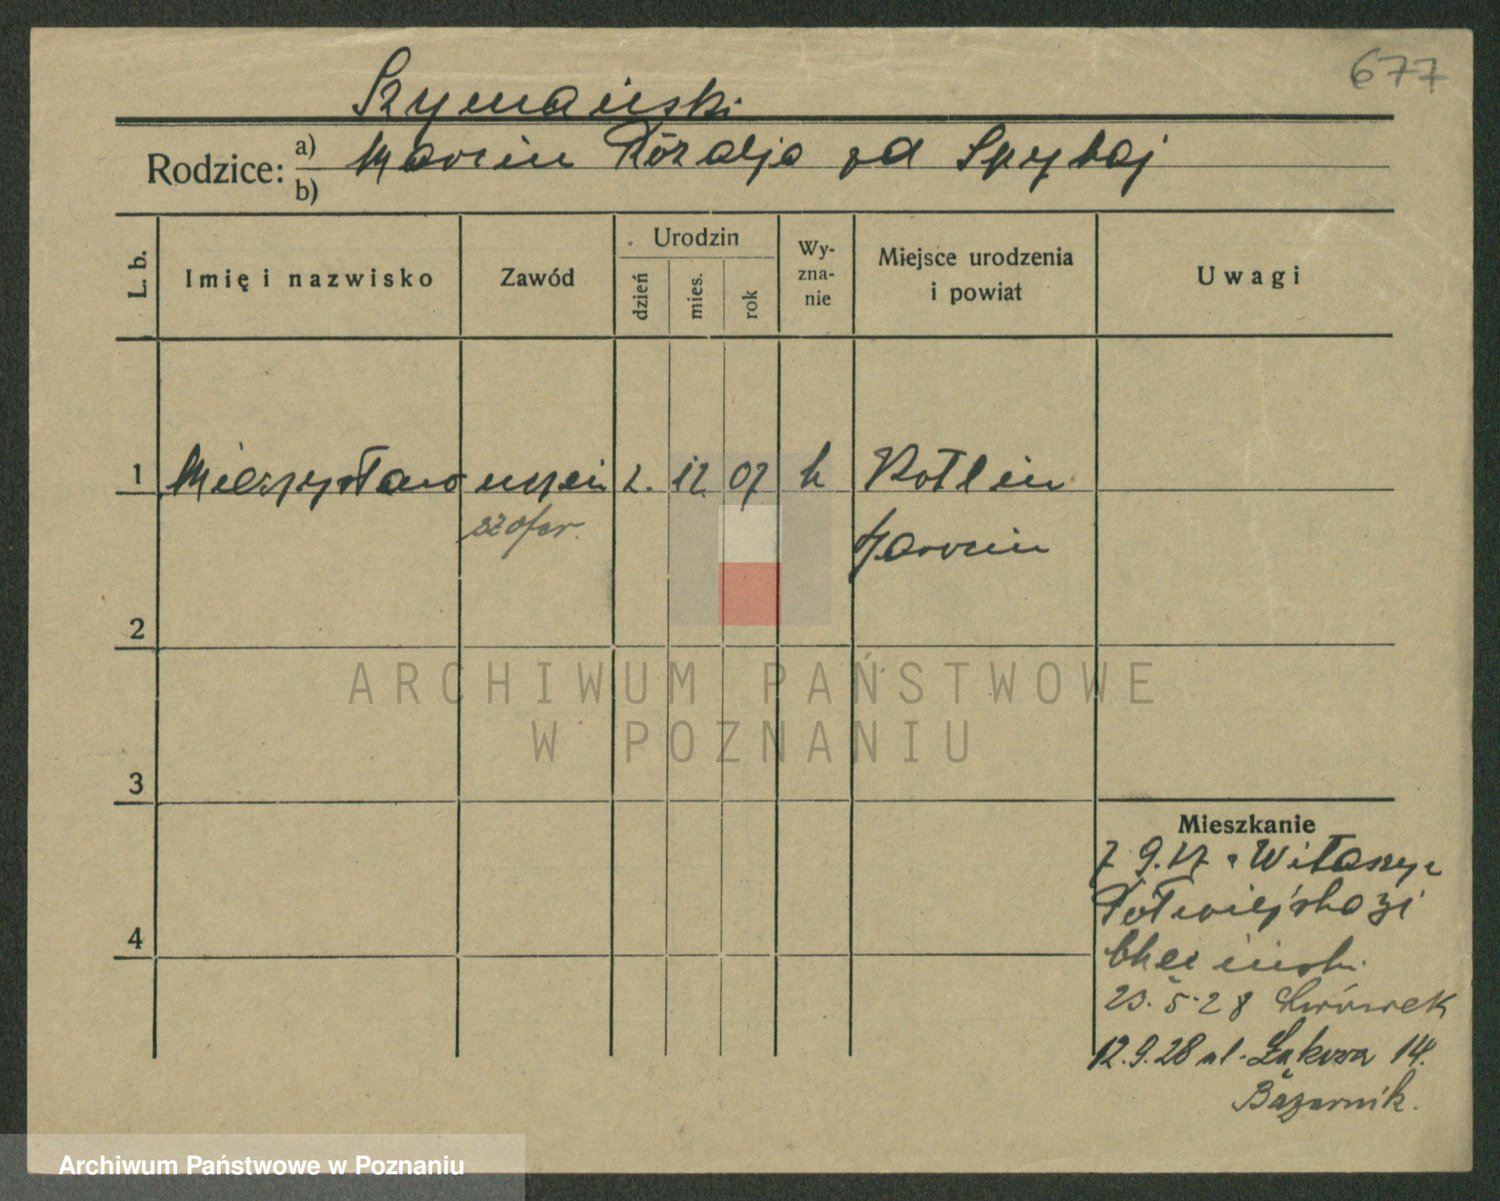 677
Szymański
Rodzice: a) Marcin Rozalja od Szybaj
b)
L. b.
Imię i nazwisko
Zawód
Urodzin
dzień
mies.
rok
Wy-
zna-
nie
Miejsce urodzenia
i powiat
Uwagi
1 Mieczysław uczeń 2. 12. 07 k Kotlin
szofer. Jarocin
2
3
4
Mieszkanie
7 9.27 z Witaszyc
Półwiejska 31
23.5.28 Lwówek
12.9.28 ul. Łąkowa 14.
Bazarnik.
ARCHIWUM PAŃSTWOWE
W POZNANIU
Archiwum Państwowe w Poznaniu